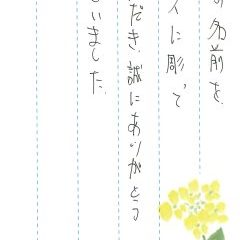 名前を
に彫って
だき、誠にありがとう
いました。